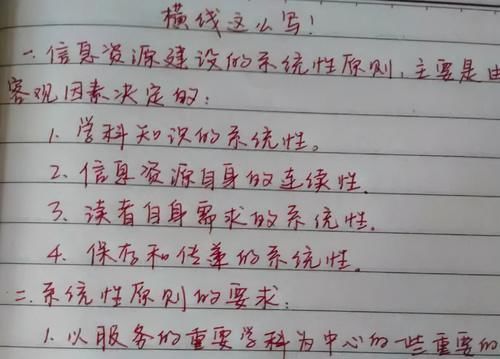 横线这么写!
一.信息资源建设的系统性原则,主要是由
客观因素决定的:
1.学科知识的系统性。
2.信息资源自身的连续性.
3.读者自身需求的系统性.
4.保存和传递的系统性.
二.系统性原则的要求:
1.以服务的重要学科为中心的一些重要的